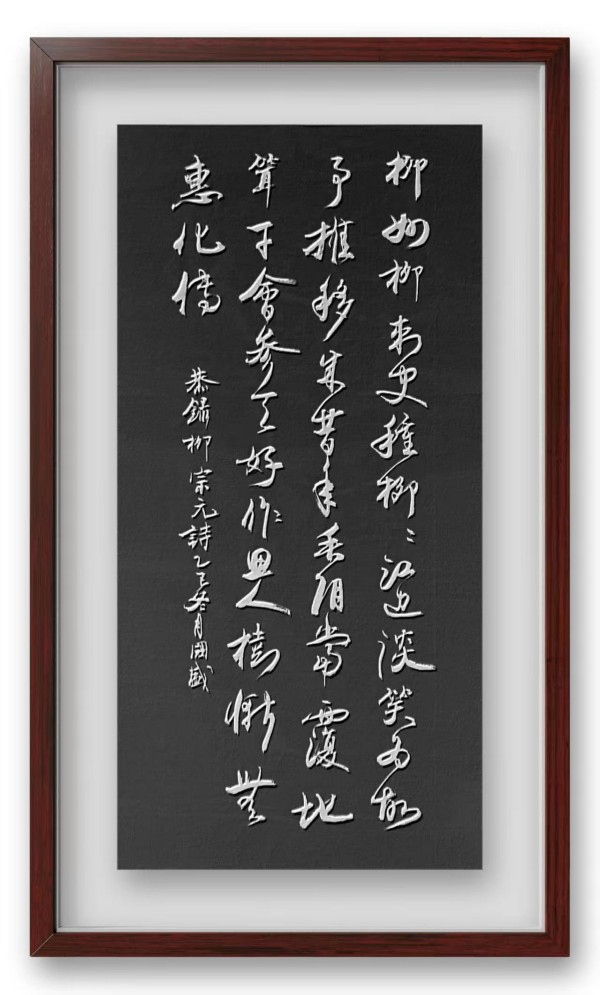 柳州柳刺史種柳〻江边談笑為故
事推移成昔年垂阴當覆地
聳干會参天好作思人樹慚無
惠化傳
恭録柳宗元詩乙巳冬月國盛